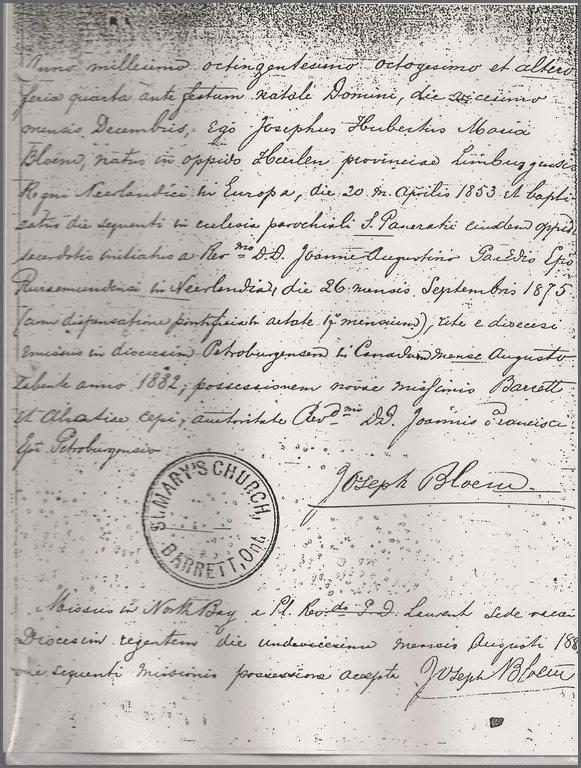 Anno millesimo octingentesimo octogesimo et altero
feria quarta ante festum natale Domini, die vicesimo
mensis Decembris, Ego Josephus Hubertus Maria
Bloem, natus in oppido Heerlen provinciae Limburgensis
Regni Neerlandici in Europa, die 20 m. Aprilis 1853 et bapti-
zatus die sequenti in eclesia parochiali S. Pancratii ejusdem oppidi
sacerdotio initiatus a Revmo DD. Joanne Augustino Paredis Epo
Ruraemundensi in Neerlandia, die 26 mensis Septembris 1875
(cum dispensatione pontificia in aetate mensium), rite e diocesi
emissus in diocesim Petroburgensem in Canadum mense Augusto
labente anno 1882; possessionem novae missionis Barrett
et Alsatiae cepi, auctoritate Revdmi DD. Joannis Francisci
Epi Petroburgensis
Joseph Bloem.
ST. MARY'S CHURCH,
BARRETT, Ont.
Missus in North Bay a Pl. Revdo P. D. Laurent sede vacan
Diocesim regentem die undevicesimo mensis Augusti 188
die sequenti missionis possessione accepta Joseph Bloem